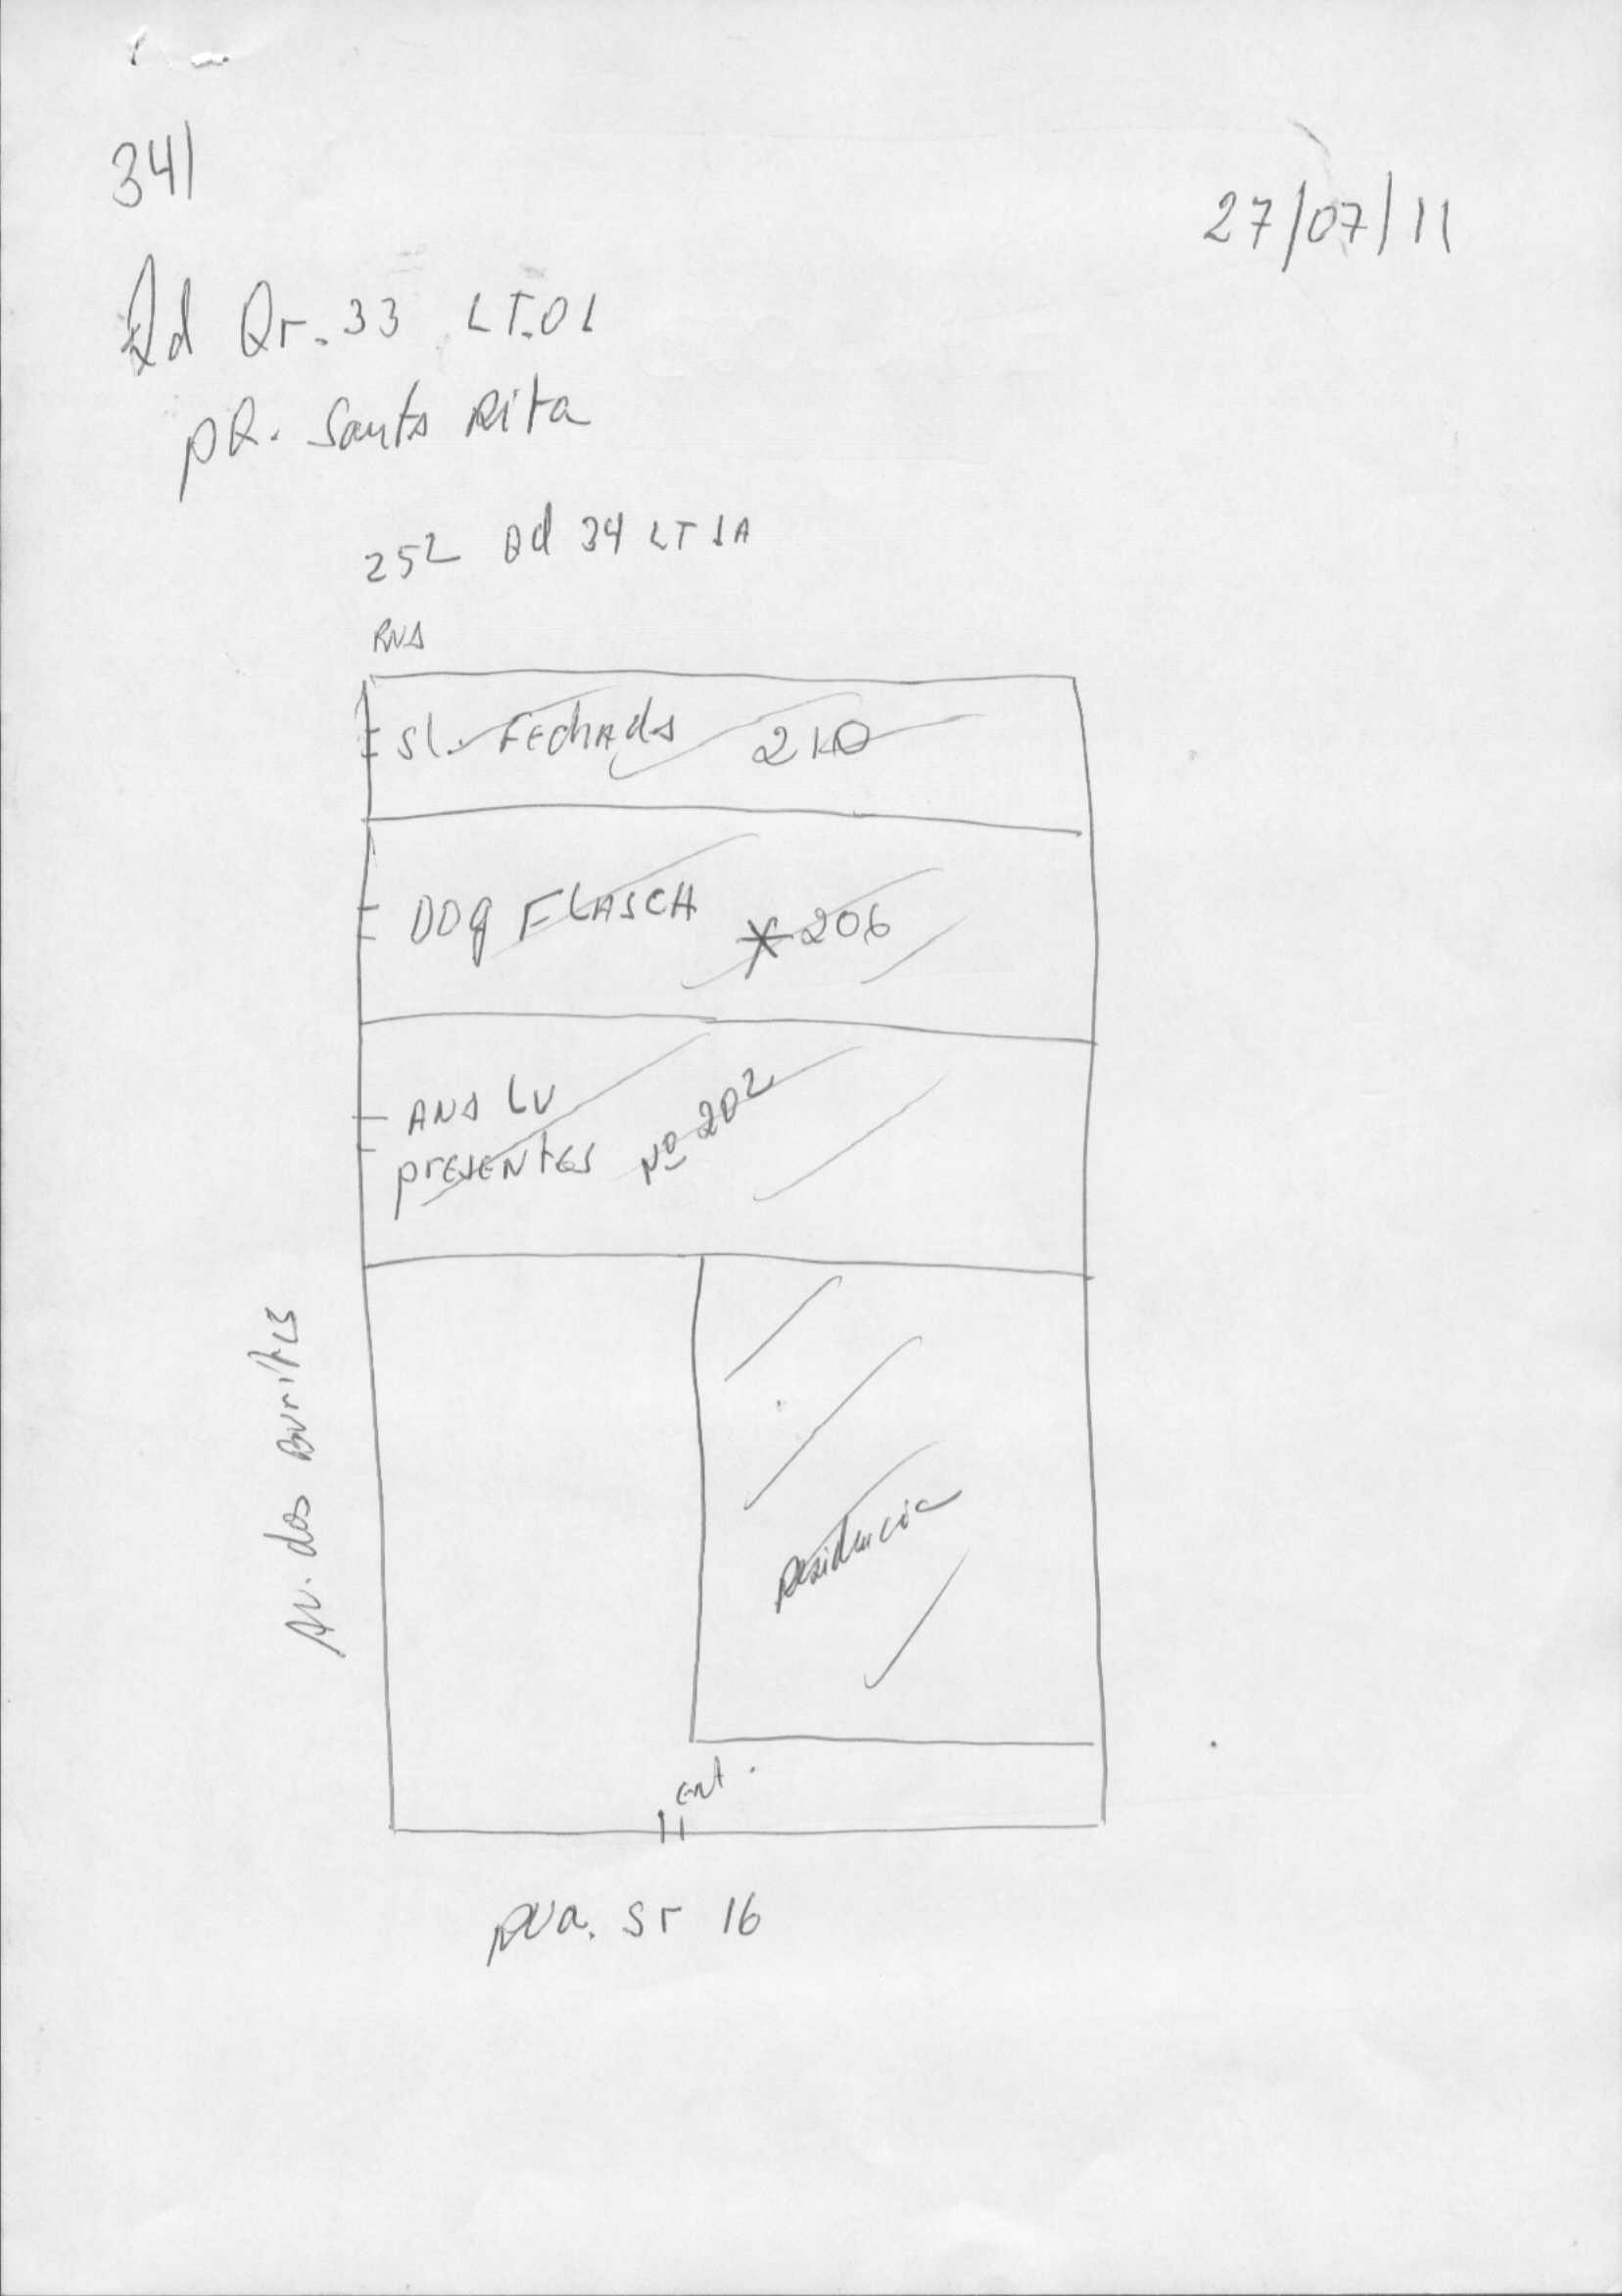 341
27/07/11
Qd Qr. 33 LT.01
PR. Santa Rita
252 Qd 34 LT 1A
RUA
Sl. FEchAdA 210
DOg FLASCH * 206
ANA LU
PrESENtES Nº 202
Av. dos Buritis
Residencia
Ent.
RUa. Sr 16